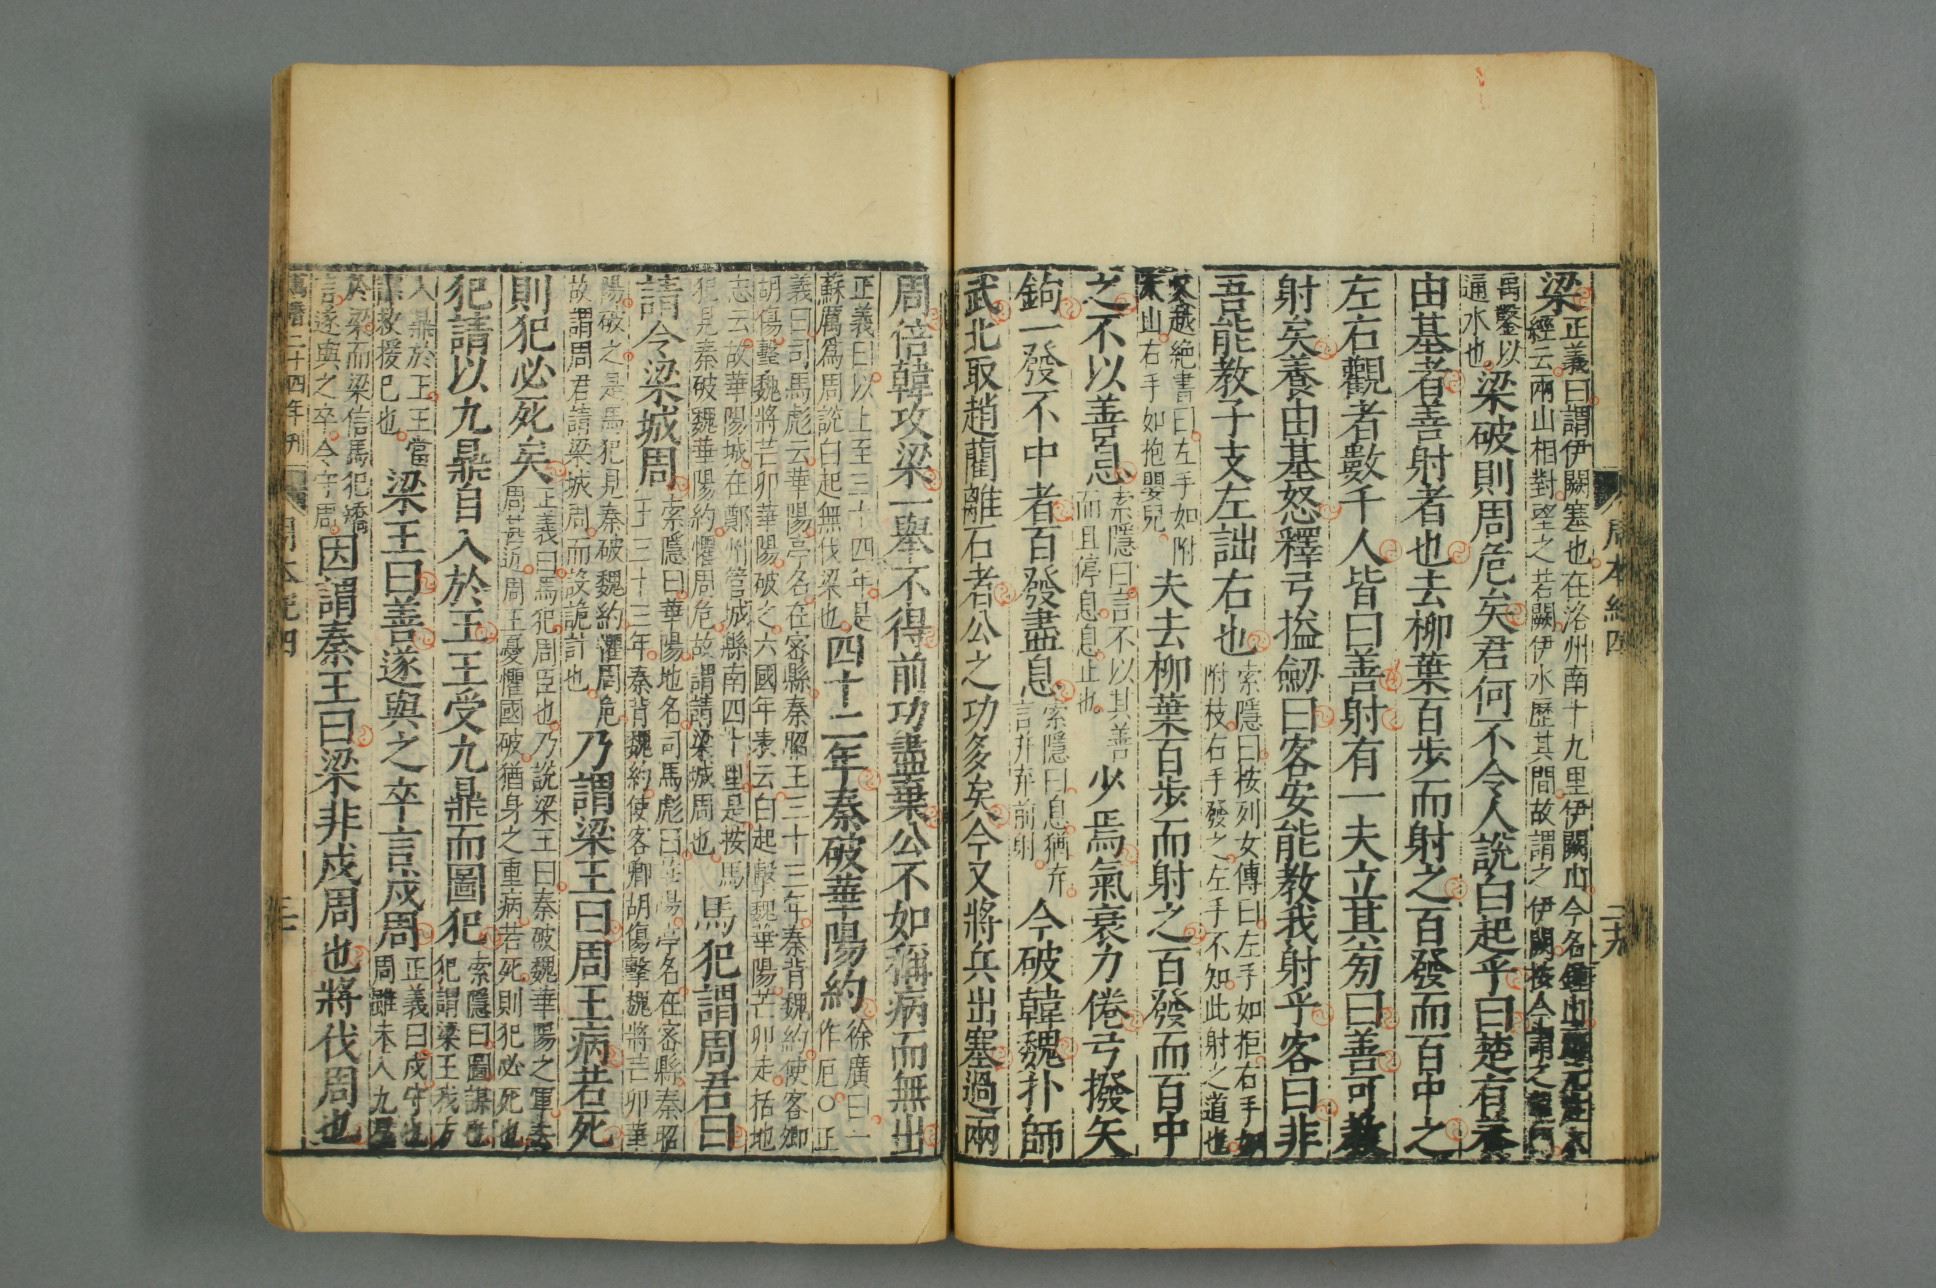 周本紀四
梁正義曰謂伊闕塞也在洛州南十九里伊闕山今名鍾山
經云兩山相對望之若闕伊水歷其間故謂之伊闕按今謂之龍門
禹鑿以通水也梁破則周危矣君何不令人說白起乎曰楚有養
由基者善射者也去柳葉百步而射之百發而百中之
左右觀者數千人皆曰善射有一夫立其旁曰善可教
射矣養由基怒釋弓搤劒曰客安能教我射乎客曰非
吾能教子支左詘右也索隱曰按列女傳曰左手如拒右手如附枝右手發之左手不知此射之道也
又越絶書曰左手如附太山右手如抱嬰兒夫去柳葉百步而射之百發而百中
之不以善息索隱曰言不以其善而且停息息止也少焉氣衰力倦弓撥矢
鉤一發不中者百發盡息索隱曰息猶弃言并弃前射今破韓魏扑師
武北取趙藺離石者公之功多矣今又將兵出塞過兩
周倍韓攻梁一舉不得前功盡棄公不如稱病而無出
正義曰以上至三十四年是蘇厲爲周說白起無伐梁也四十二年秦破華陽約徐廣曰一作厄○正
義曰司馬彪云華陽亭名在密縣秦昭王三十三年秦背魏約使客卿
胡傷擊魏將芒卯華陽破之六國年表云白起擊魏華陽芒卯走括地
志云故華陽城在鄭州管城縣南四十里是按馬
犯見秦破魏華陽約懼周危故謂請梁城周也馬犯謂周君曰
請令梁城周索隱曰華陽地名司馬彪曰華陽亭名在密縣秦昭
王三十三年秦背魏約使客卿胡傷擊魏將芒卯華
陽破之是馬犯見秦破魏約懼周危
故謂周君請梁城周而設詭計也乃謂梁王曰周王病若死
則犯必死矣正義曰馬犯周臣也乃說梁王曰秦破魏華陽之軍去
周甚近周王憂懼國破猶身之重病若死則犯必死也
犯請以九鼎自入於王王受九鼎而圖犯索隱曰圖謀也
犯謂梁王我方
入鼎於王王當謀救援己也梁王曰善遂與之卒言戍周正義曰戍守也
周雖未入九鼎
於梁而梁信馬犯矯
言遂與之卒令守周因謂秦王曰梁非戍周也將伐周也
二十四年刊
周本紀四